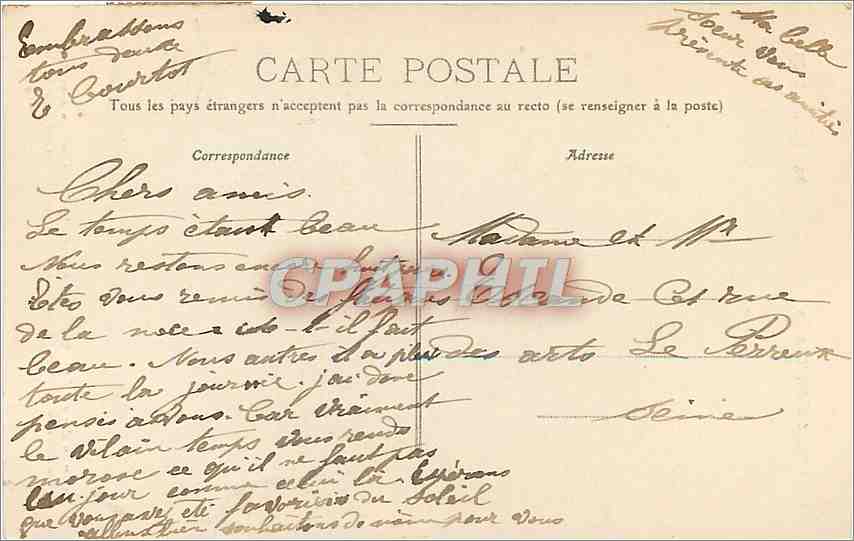 Embrassons
tous deux
E. Courtot
Ma belle
soeur vous
présente ses amitiés
CARTE POSTALE
Tous les pays étrangers n'acceptent pas la correspondance au recto (se renseigner à la poste)
Correspondance
Chers amis.
Le temps étant beau
Nous restons encore huit jours
Êtes vous remis des
de la noce il fait
beau. Nous autres il a plu
toute la journée. j'ai donc
pensé à vous. Car vraiment
le vilain temps vous rends
morose ce qu'il ne faut pas
un jour comme celui là. Espérons
que vous avez été favorisés du Soleil
souhaitons de même pour vous
Adresse
Madame et Mr
et rue
des arts Le Perreux
Seine
CPAPHIL